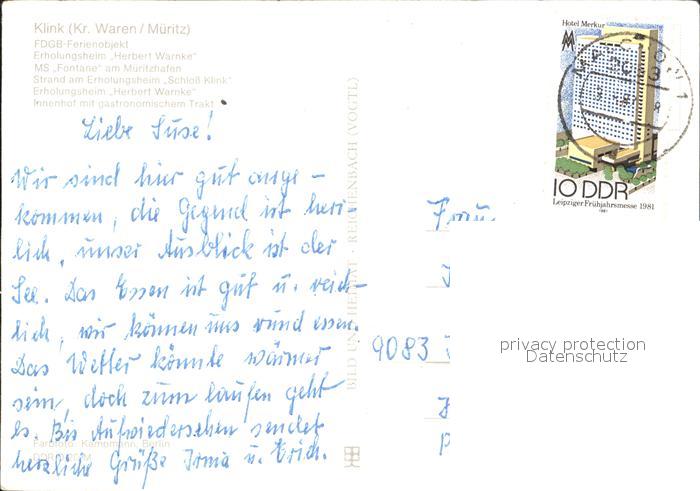 Klink (Kr. Waren/Müritz)
FDGB-Ferienobjekt
Erholungsheim „Herbert Warnke"
MS „Fontane" am Müritzhafen
Strand am Erholungsheim „Schloß Klink"
Erholungsheim „Herbert Warnke"
Innenhof mit gastronomischem Trakt
Liebe Suse!
Wir sind hier gut ange-
kommen, die Gegend ist herr-
lich, unser Ausblick ist der
See. Das Essen ist gut u. reich-
lich, wir können uns rund essen.
Das Wetter könnte wärmer
sein, doch zum laufen geht
es. Bis Aufwiedersehen sendet
herzliche Grüße Irma u. Erich.
Farbfoto: Berlin
BILD UND HEIMAT · REICHENBACH (VOGTL)
Hotel Merkur
MM
10 DDR
Leipziger Frühjahrsmesse 1981
1981
Frau
9083
privacy protection
Datenschutz